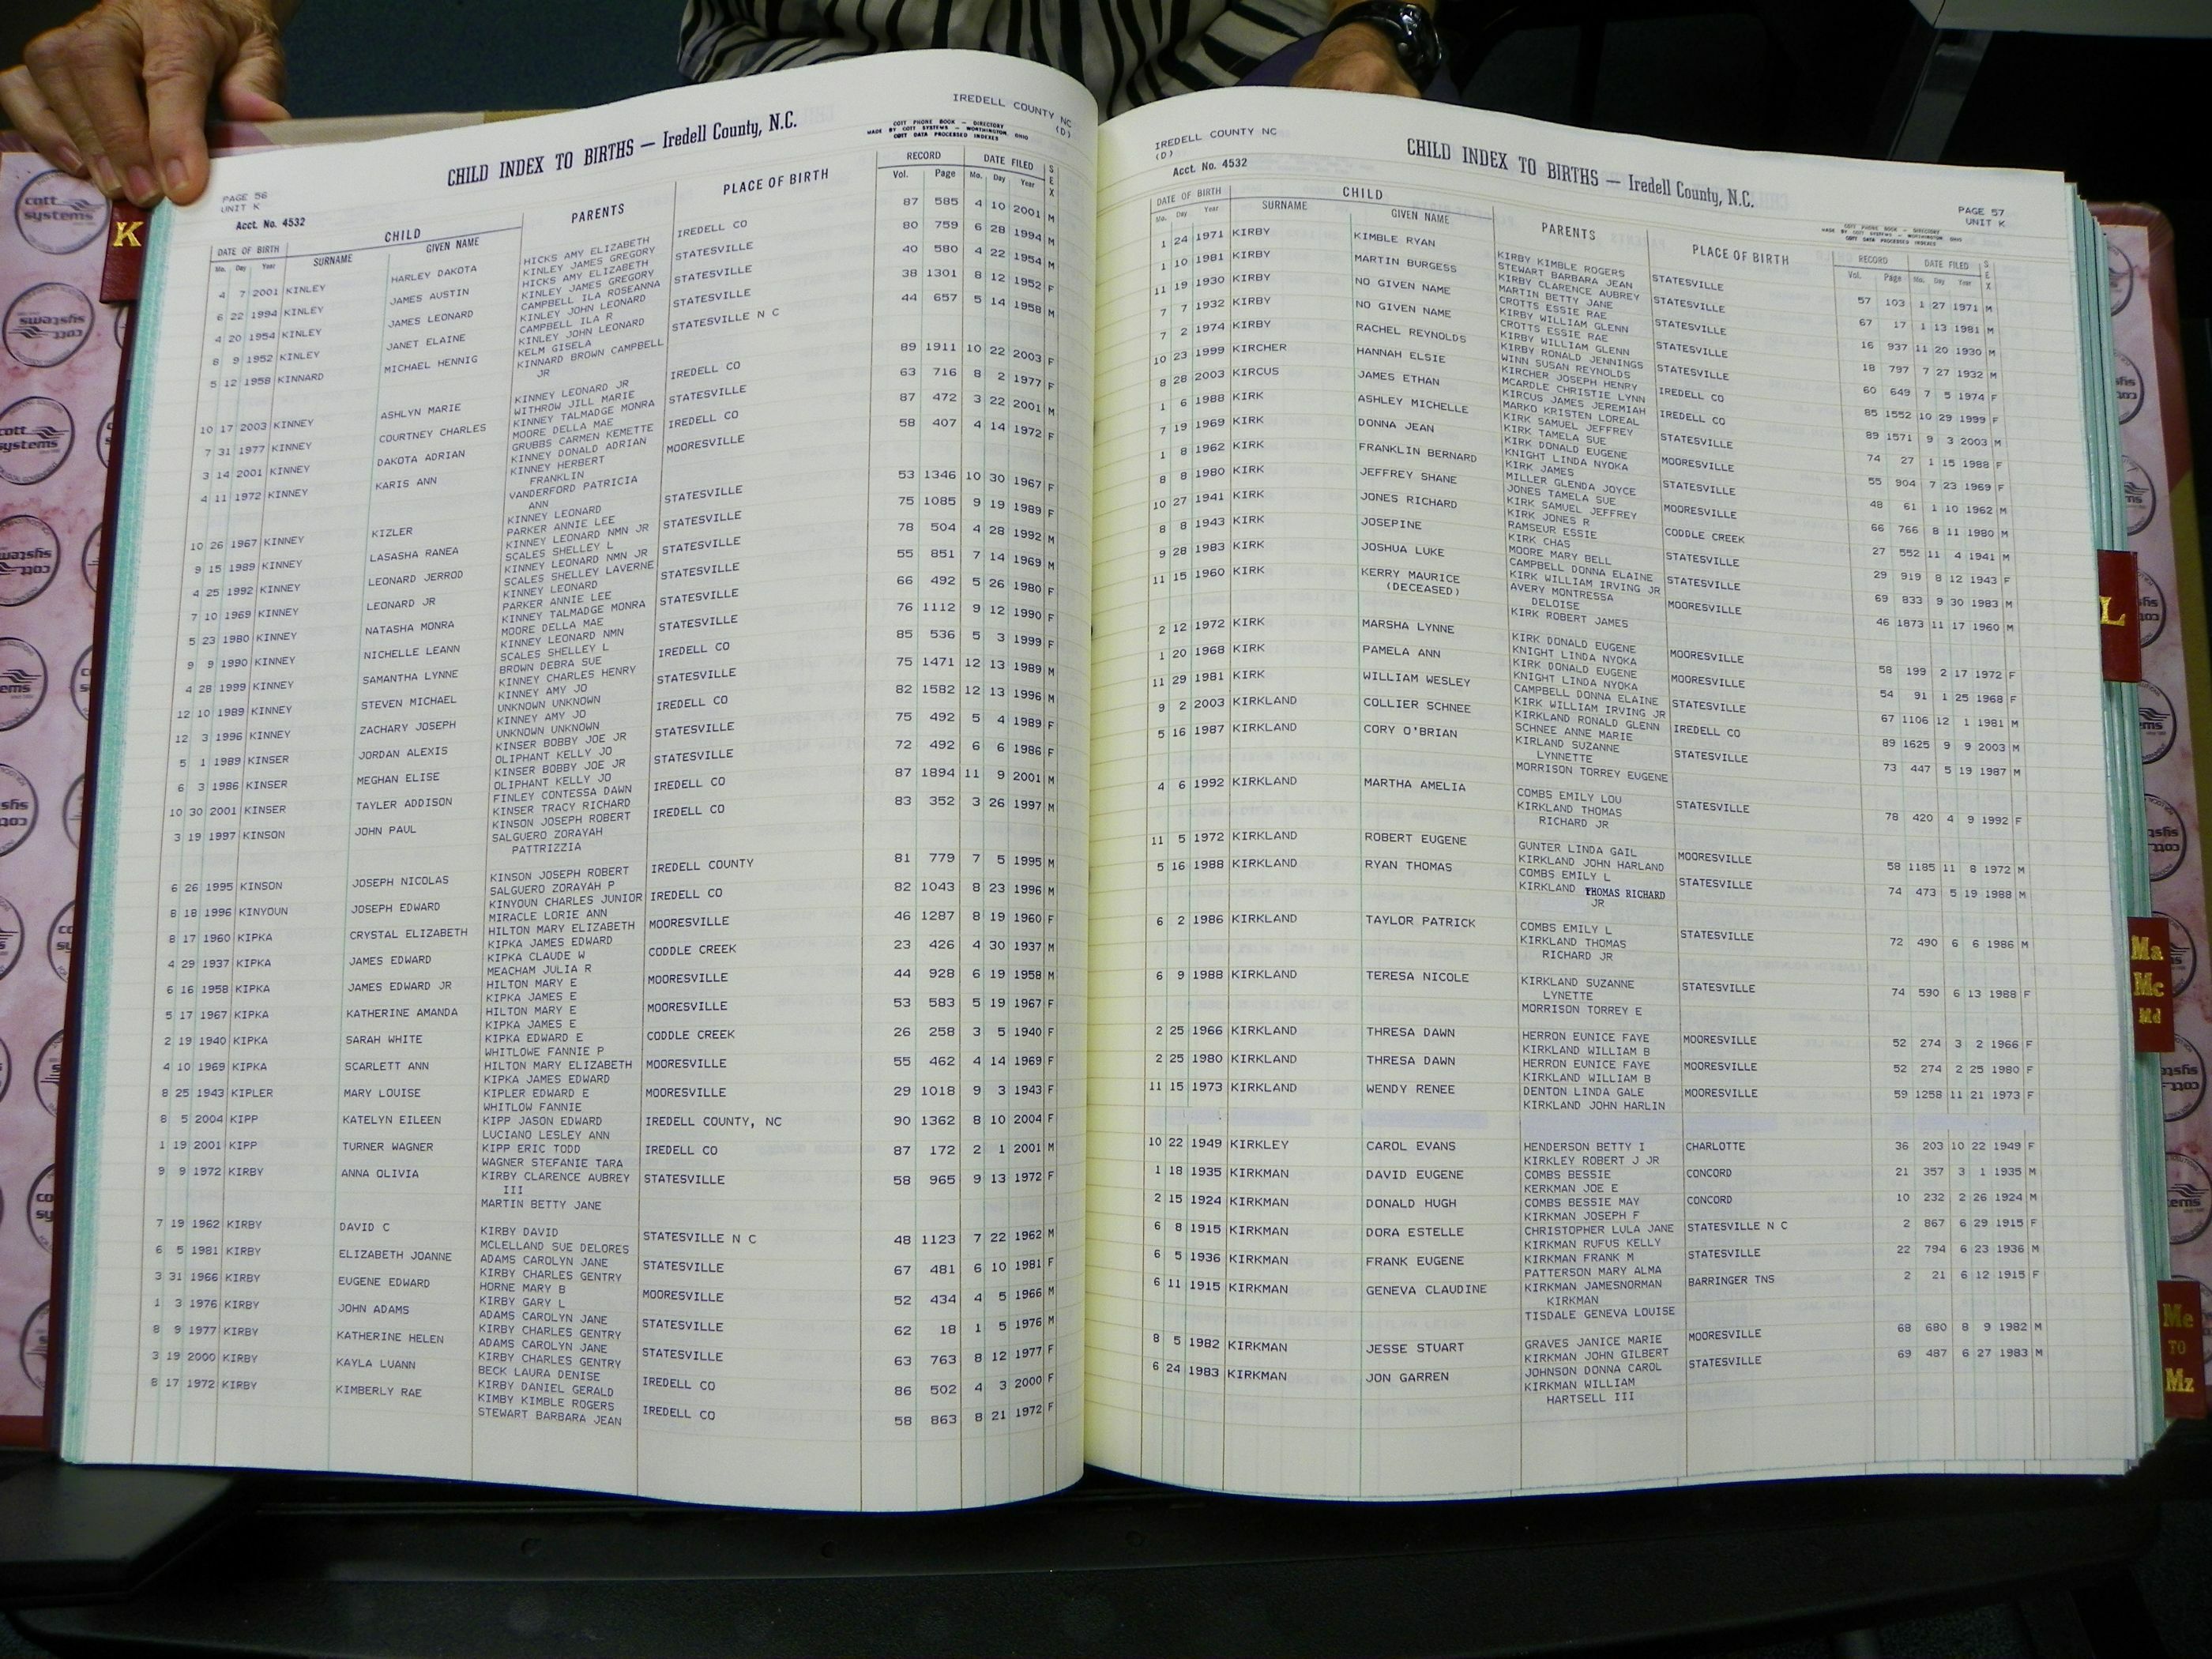 IREDELL COUNTY NC
(D)
CHILD INDEX TO BIRTHS — Iredell County, N.C.
COTT PHONE BOOK — DIRECTORY
MADE BY COTT SYSTEMS — WORTHINGTON, OHIO
COTT DATA PROCESSED INDEXES
PAGE 56
UNIT K
Acct. No. 4532
DATE OF BIRTH CHILD PARENTS PLACE OF BIRTH RECORD DATE FILED SEX
Mo. Day Year SURNAME GIVEN NAME Vol. Page Mo. Day Year
4 7 2001 KINLEY HARLEY DAKOTA HICKS AMY ELIZABETH IREDELL CO 87 585 4 10 2001 M
KINLEY JAMES GREGORY
6 22 1994 KINLEY JAMES AUSTIN HICKS AMY ELIZABETH STATESVILLE 80 759 6 28 1994 M
KINLEY JAMES GREGORY
4 20 1954 KINLEY JAMES LEONARD CAMPBELL ILA ROSEANNA STATESVILLE 40 580 4 22 1954 M
KINLEY JOHN LEONARD
8 9 1952 KINLEY JANET ELAINE CAMPBELL ILA R STATESVILLE 38 1301 8 12 1952 F
KINLEY JOHN LEONARD
5 12 1958 KINNARD MICHAEL HENNIG KELM GISELA STATESVILLE N C 44 657 5 14 1958 M
KINNARD BROWN CAMPBELL
JR
10 17 2003 KINNEY ASHLYN MARIE KINNEY LEONARD JR IREDELL CO 89 1911 10 22 2003 F
WITHROW JILL MARIE
7 31 1977 KINNEY COURTNEY CHARLES KINNEY TALMADGE MONRA STATESVILLE 63 716 8 2 1977 F
MOORE DELLA MAE
3 14 2001 KINNEY DAKOTA ADRIAN GRUBBS CARMEN KEMETTE IREDELL CO 87 472 3 22 2001 M
KINNEY DONALD ADRIAN
4 11 1972 KINNEY KARIS ANN KINNEY HERBERT MOORESVILLE 58 407 4 14 1972 F
FRANKLIN
VANDERFORD PATRICIA
ANN
10 26 1967 KINNEY KIZLER KINNEY LEONARD STATESVILLE 53 1346 10 30 1967 F
PARKER ANNIE LEE
9 15 1989 KINNEY LASASHA RANEA KINNEY LEONARD NMN JR STATESVILLE 75 1085 9 19 1989 F
SCALES SHELLEY L
4 25 1992 KINNEY LEONARD JERROD KINNEY LEONARD NMN JR STATESVILLE 78 504 4 28 1992 M
SCALES SHELLEY LAVERNE
7 10 1969 KINNEY LEONARD JR KINNEY LEONARD STATESVILLE 55 851 7 14 1969 M
PARKER ANNIE LEE
5 23 1980 KINNEY NATASHA MONRA KINNEY TALMADGE MONRA STATESVILLE 66 492 5 26 1980 F
MOORE DELLA MAE
9 9 1990 KINNEY NICHELLE LEANN KINNEY LEONARD NMN STATESVILLE 76 1112 9 12 1990 F
SCALES SHELLEY L
4 28 1999 KINNEY SAMANTHA LYNNE BROWN DEBRA SUE IREDELL CO 85 536 5 3 1999 F
KINNEY CHARLES HENRY
12 10 1989 KINNEY STEVEN MICHAEL KINNEY AMY JO STATESVILLE 75 1471 12 13 1989 M
UNKNOWN UNKNOWN
12 3 1996 KINNEY ZACHARY JOSEPH KINNEY AMY JO IREDELL CO 82 1582 12 13 1996 M
UNKNOWN UNKNOWN
5 1 1989 KINSER JORDAN ALEXIS KINSER BOBBY JOE JR STATESVILLE 75 492 5 4 1989 F
OLIPHANT KELLY JO
6 3 1986 KINSER MEGHAN ELISE KINSER BOBBY JOE JR STATESVILLE 72 492 6 6 1986 F
OLIPHANT KELLY JO
10 30 2001 KINSER TAYLER ADDISON FINLEY CONTESSA DAWN IREDELL CO 87 1894 11 9 2001 M
KINSER TRACY RICHARD
3 19 1997 KINSON JOHN PAUL KINSON JOSEPH ROBERT IREDELL CO 83 352 3 26 1997 M
SALGUERO ZORAYAH
PATTRIZZIA
6 26 1995 KINSON JOSEPH NICOLAS KINSON JOSEPH ROBERT IREDELL COUNTY 81 779 7 5 1995 M
SALGUERO ZORAYAH P
8 18 1996 KINYOUN JOSEPH EDWARD KINYOUN CHARLES JUNIOR IREDELL CO 82 1043 8 23 1996 M
MIRACLE LORIE ANN
8 17 1960 KIPKA CRYSTAL ELIZABETH HILTON MARY ELIZABETH MOORESVILLE 46 1287 8 19 1960 F
KIPKA JAMES EDWARD
4 29 1937 KIPKA JAMES EDWARD KIPKA CLAUDE W CODDLE CREEK 23 426 4 30 1937 M
MEACHAM JULIA R
6 16 1958 KIPKA JAMES EDWARD JR HILTON MARY E MOORESVILLE 44 928 6 19 1958 M
KIPKA JAMES E
5 17 1967 KIPKA KATHERINE AMANDA HILTON MARY E MOORESVILLE 53 583 5 19 1967 F
KIPKA JAMES E
2 19 1940 KIPKA SARAH WHITE KIPKA EDWARD E CODDLE CREEK 26 258 3 5 1940 F
WHITLOWE FANNIE P
4 10 1969 KIPKA SCARLETT ANN HILTON MARY ELIZABETH MOORESVILLE 55 462 4 14 1969 F
KIPKA JAMES EDWARD
8 25 1943 KIPLER MARY LOUISE KIPLER EDWARD E MOORESVILLE 29 1018 9 3 1943 F
WHITLOW FANNIE
8 5 2004 KIPP KATELYN EILEEN KIPP JASON EDWARD IREDELL COUNTY, NC 90 1362 8 10 2004 F
LUCIANO LESLEY ANN
1 19 2001 KIPP TURNER WAGNER KIPP ERIC TODD IREDELL CO 87 172 2 1 2001 M
WAGNER STEFANIE TARA
9 9 1972 KIRBY ANNA OLIVIA KIRBY CLARENCE AUBREY STATESVILLE 58 965 9 13 1972 F
III
MARTIN BETTY JANE
7 19 1962 KIRBY DAVID C KIRBY DAVID STATESVILLE N C 48 1123 7 22 1962 M
MCLELLAND SUE DELORES
6 5 1981 KIRBY ELIZABETH JOANNE ADAMS CAROLYN JANE STATESVILLE 67 481 6 10 1981 F
KIRBY CHARLES GENTRY
3 31 1966 KIRBY EUGENE EDWARD HORNE MARY B MOORESVILLE 52 434 4 5 1966 M
KIRBY GARY L
1 3 1976 KIRBY JOHN ADAMS ADAMS CAROLYN JANE STATESVILLE 62 18 1 5 1976 M
KIRBY CHARLES GENTRY
8 9 1977 KIRBY KATHERINE HELEN ADAMS CAROLYN JANE STATESVILLE 63 763 8 12 1977 F
KIRBY CHARLES GENTRY
3 19 2000 KIRBY KAYLA LUANN BECK LAURA DENISE IREDELL CO 86 502 4 3 2000 F
KIRBY DANIEL GERALD
8 17 1972 KIRBY KIMBERLY RAE KIMBY KIMBLE ROGERS IREDELL CO 58 863 8 21 1972 F
STEWART BARBARA JEAN
IREDELL COUNTY NC
(D)
Acct. No. 4532
CHILD INDEX TO BIRTHS — Iredell County, N.C.
PAGE 57
UNIT K
COTT PHONE BOOK — DIRECTORY
MADE BY COTT SYSTEMS — WORTHINGTON, OHIO
COTT DATA PROCESSED INDEXES
DATE OF BIRTH CHILD PARENTS PLACE OF BIRTH RECORD DATE FILED SEX
Mo. Day Year SURNAME GIVEN NAME Vol. Page Mo. Day Year
1 24 1971 KIRBY KIMBLE RYAN KIRBY KIMBLE ROGERS STATESVILLE 57 103 1 27 1971 M
STEWART BARBARA JEAN
1 10 1981 KIRBY MARTIN BURGESS KIRBY CLARENCE AUBREY STATESVILLE 67 17 1 13 1981 M
MARTIN BETTY JANE
11 19 1930 KIRBY NO GIVEN NAME CROTTS ESSIE RAE STATESVILLE 16 937 11 20 1930 M
KIRBY WILLIAM GLENN
7 7 1932 KIRBY NO GIVEN NAME CROTTS ESSIE RAE STATESVILLE 18 797 7 27 1932 M
KIRBY WILLIAM GLENN
7 2 1974 KIRBY RACHEL REYNOLDS KIRBY RONALD JENNINGS STATESVILLE 60 649 7 5 1974 F
WINN SUSAN REYNOLDS
10 23 1999 KIRCHER HANNAH ELSIE KIRCHER JOSEPH HENRY IREDELL CO 85 1552 10 29 1999 F
MCARDLE CHRISTIE LYNN
8 28 2003 KIRCUS JAMES ETHAN KIRCUS JAMES JEREMIAH IREDELL CO 89 1571 9 3 2003 M
MARKO KRISTEN LOREAL
1 6 1988 KIRK ASHLEY MICHELLE KIRK SAMUEL JEFFREY STATESVILLE 74 27 1 15 1988 F
KIRK TAMELA SUE
7 19 1969 KIRK DONNA JEAN KIRK DONALD EUGENE MOORESVILLE 55 904 7 23 1969 F
KNIGHT LINDA NYOKA
1 8 1962 KIRK FRANKLIN BERNARD KIRK JAMES STATESVILLE 48 61 1 10 1962 M
MILLER GLENDA JOYCE
8 8 1980 KIRK JEFFREY SHANE JONES TAMELA SUE MOORESVILLE 66 766 8 11 1980 M
KIRK SAMUEL JEFFREY
10 27 1941 KIRK JONES RICHARD KIRK JONES R CODDLE CREEK 27 552 11 4 1941 M
RAMSEUR ESSIE
8 8 1943 KIRK JOSEPINE KIRK CHAS STATESVILLE 29 919 8 12 1943 F
MOORE MARY BELL
9 28 1983 KIRK JOSHUA LUKE CAMPBELL DONNA ELAINE STATESVILLE 69 833 9 30 1983 M
KIRK WILLIAM IRVING JR
11 15 1960 KIRK KERRY MAURICE AVERY MONTRESSA MOORESVILLE 46 1873 11 17 1960 M
(DECEASED) DELOISE
KIRK ROBERT JAMES
2 12 1972 KIRK MARSHA LYNNE KIRK DONALD EUGENE MOORESVILLE 58 199 2 17 1972 F
KNIGHT LINDA NYOKA
1 20 1968 KIRK PAMELA ANN KIRK DONALD EUGENE MOORESVILLE 54 91 1 25 1968 F
KNIGHT LINDA NYOKA
11 29 1981 KIRK WILLIAM WESLEY CAMPBELL DONNA ELAINE STATESVILLE 67 1106 12 1 1981 M
KIRK WILLIAM IRVING JR
9 2 2003 KIRKLAND COLLIER SCHNEE KIRKLAND RONALD GLENN IREDELL CO 89 1625 9 9 2003 M
SCHNEE ANNE MARIE
5 16 1987 KIRKLAND CORY O'BRIAN KIRLAND SUZANNE STATESVILLE 73 447 5 19 1987 M
LYNNETTE
MORRISON TORREY EUGENE
4 6 1992 KIRKLAND MARTHA AMELIA COMBS EMILY LOU STATESVILLE 78 420 4 9 1992 F
KIRKLAND THOMAS
RICHARD JR
11 5 1972 KIRKLAND ROBERT EUGENE GUNTER LINDA GAIL MOORESVILLE 58 1185 11 8 1972 M
KIRKLAND JOHN HARLAND
5 16 1988 KIRKLAND RYAN THOMAS COMBS EMILY L STATESVILLE 74 473 5 19 1988 M
KIRKLAND THOMAS RICHARD
JR
6 2 1986 KIRKLAND TAYLOR PATRICK COMBS EMILY L STATESVILLE 72 490 6 6 1986 M
KIRKLAND THOMAS
RICHARD JR
6 9 1988 KIRKLAND TERESA NICOLE KIRKLAND SUZANNE STATESVILLE 74 590 6 13 1988 F
LYNETTE
MORRISON TORREY E
2 25 1966 KIRKLAND THRESA DAWN HERRON EUNICE FAYE MOORESVILLE 52 274 3 2 1966 F
KIRKLAND WILLIAM B
2 25 1980 KIRKLAND THRESA DAWN HERRON EUNICE FAYE MOORESVILLE 52 274 2 25 1980 F
KIRKLAND WILLIAM B
11 15 1973 KIRKLAND WENDY RENEE DENTON LINDA GALE MOORESVILLE 59 1258 11 21 1973 F
KIRKLAND JOHN HARLIN
10 22 1949 KIRKLEY CAROL EVANS HENDERSON BETTY I CHARLOTTE 36 203 10 22 1949 F
KIRKLEY ROBERT J JR
1 18 1935 KIRKMAN DAVID EUGENE COMBS BESSIE CONCORD 21 357 3 1 1935 M
KERKMAN JOE E
2 15 1924 KIRKMAN DONALD HUGH COMBS BESSIE MAY CONCORD 10 232 2 26 1924 M
KIRKMAN JOSEPH F
6 8 1915 KIRKMAN DORA ESTELLE CHRISTOPHER LULA JANE STATESVILLE N C 2 867 6 29 1915 F
KIRKMAN RUFUS KELLY
6 5 1936 KIRKMAN FRANK EUGENE KIRKMAN FRANK M STATESVILLE 22 794 6 23 1936 M
PATTERSON MARY ALMA
6 11 1915 KIRKMAN GENEVA CLAUDINE KIRKMAN JAMESNORMAN BARRINGER TNS 2 21 6 12 1915 F
KIRKMAN
TISDALE GENEVA LOUISE
8 5 1982 KIRKMAN JESSE STUART GRAVES JANICE MARIE MOORESVILLE 68 680 8 9 1982 M
KIRKMAN JOHN GILBERT
6 24 1983 KIRKMAN JON GARREN JOHNSON DONNA CAROL STATESVILLE 69 487 6 27 1983 M
KIRKMAN WILLIAM
HARTSELL III
K
L
Ma
Mc
Md
Me
TO
Mz
cott
systems